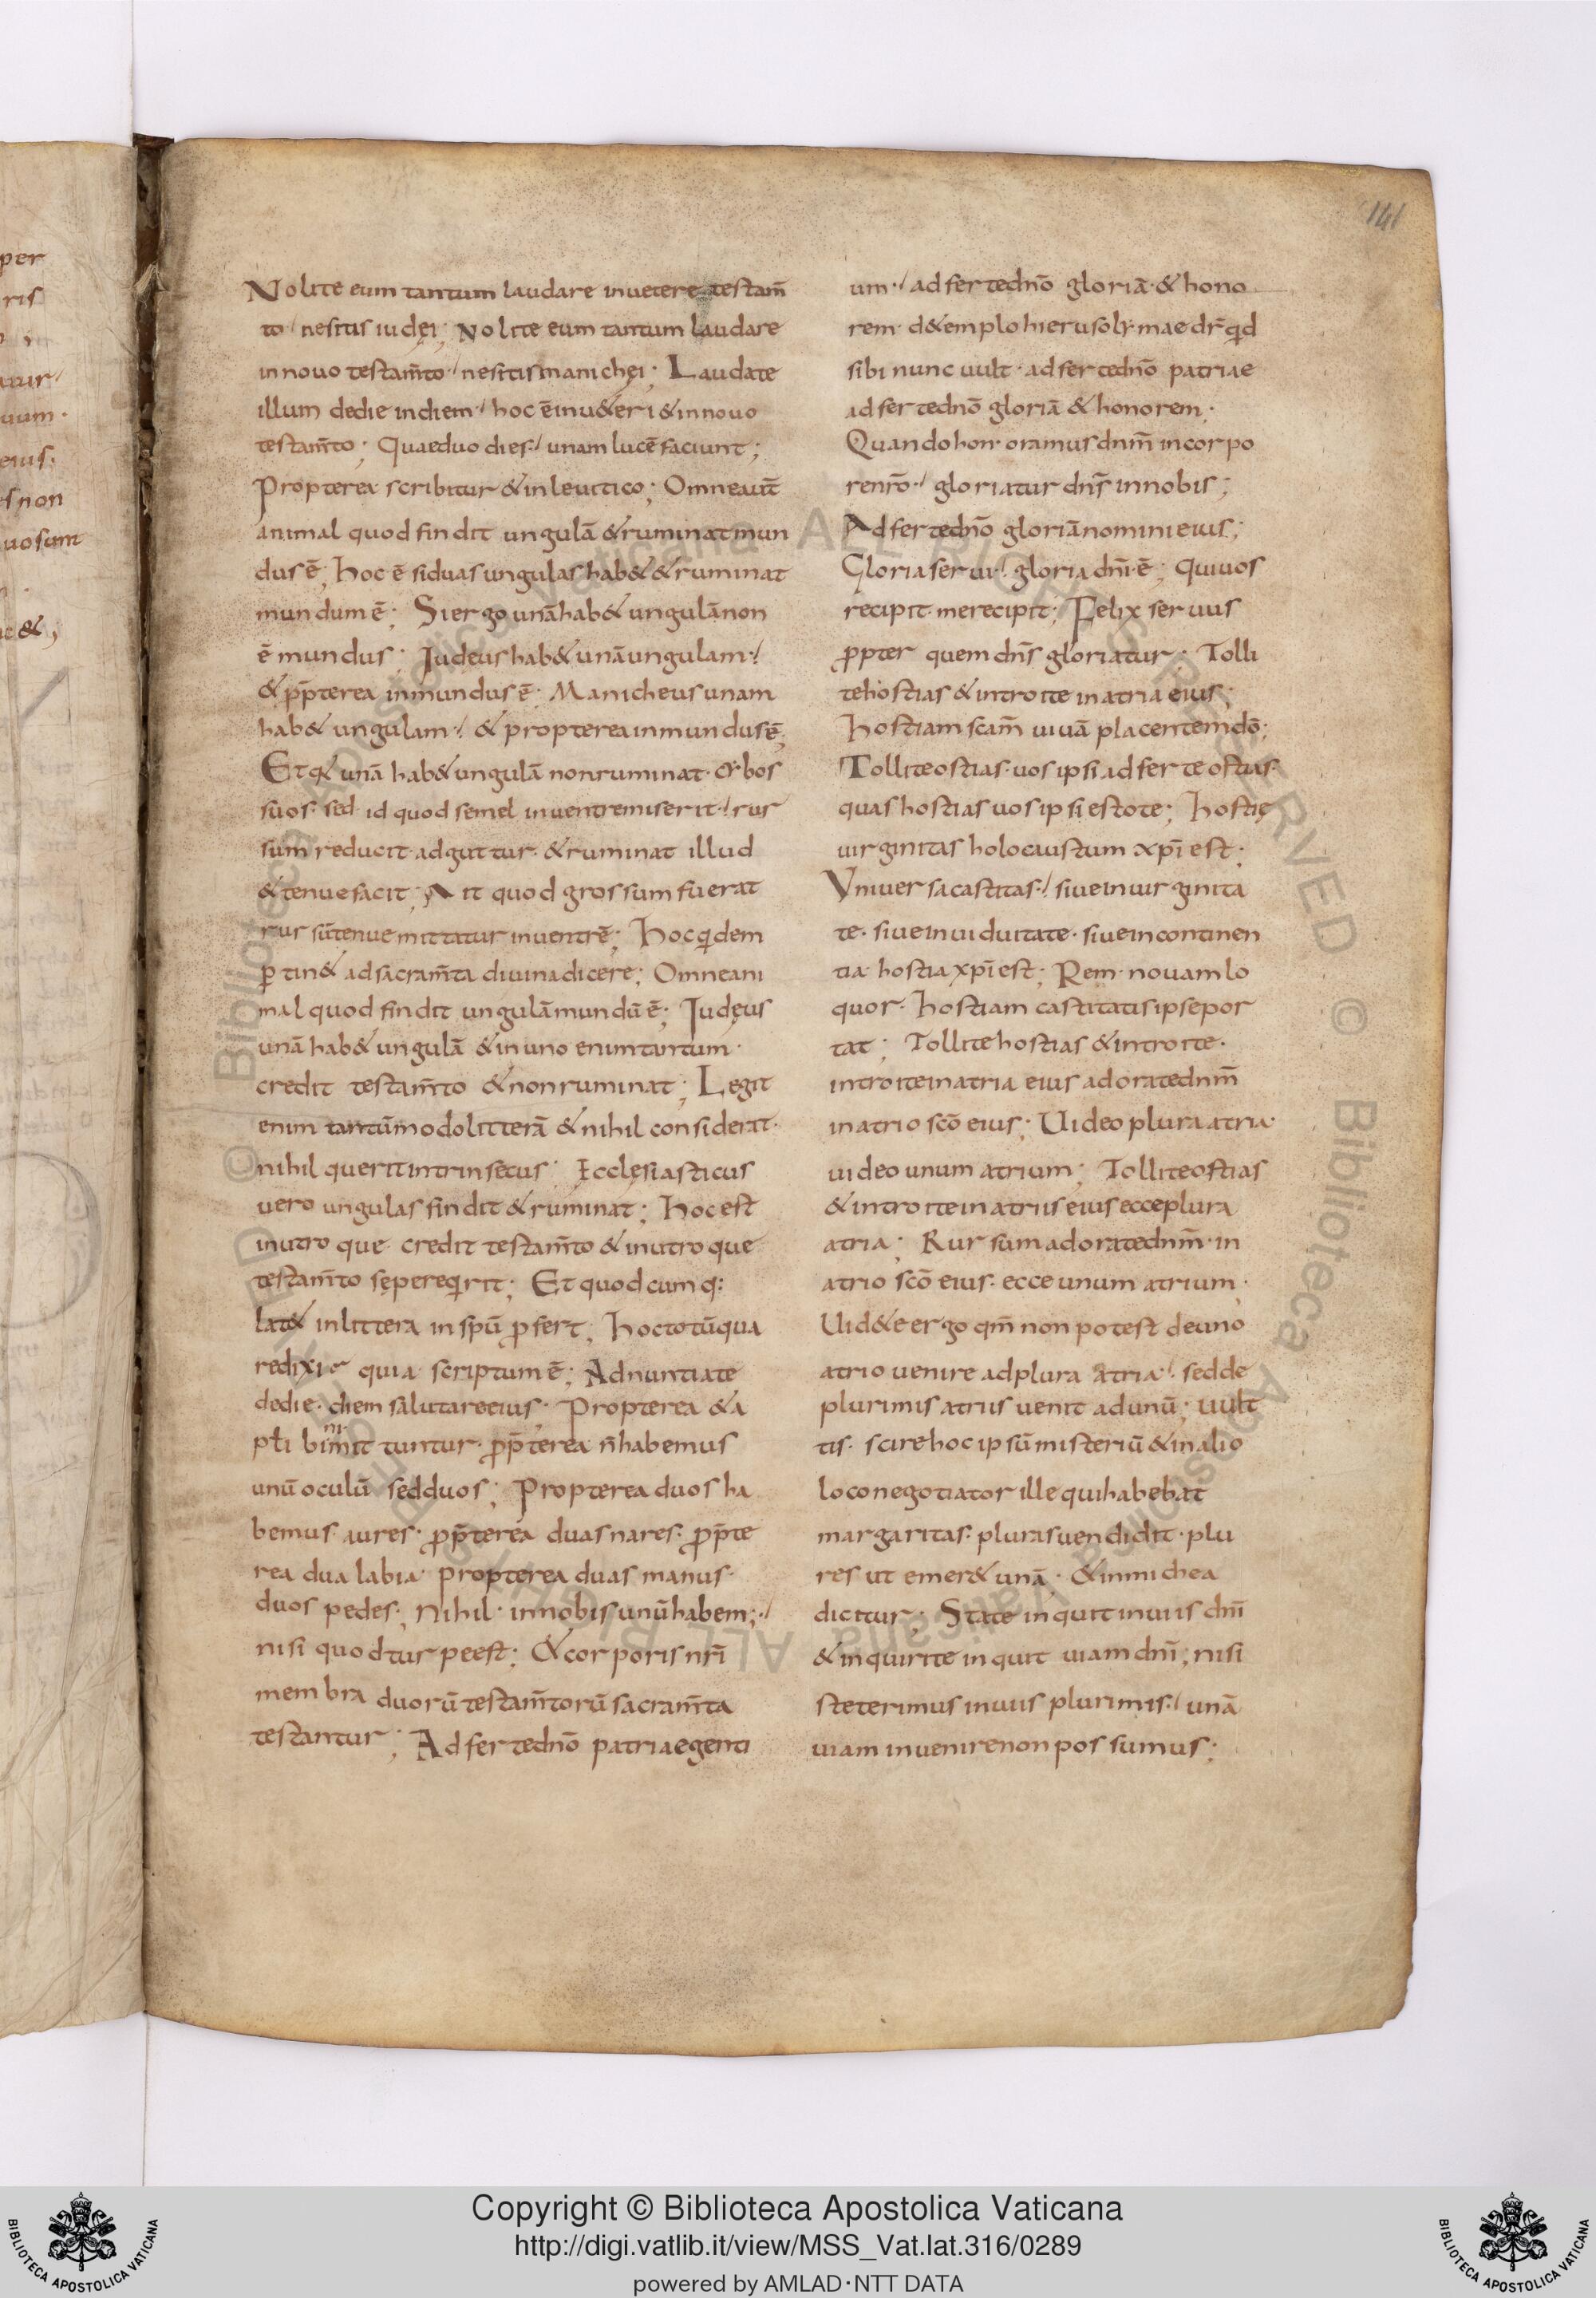 141
Nolite eum tantum laudare inuetere testam̄
to / nesitis iudęi; Nolite eum tantum laudare
innouo testam̄to / nesitis manichęi; Laudate
illum dedie indiem / hoc ē inu&eri & innouo
testam̄to; Quae duo dies / unam lucē faciunt;
Propterea scribitur & in leuitico; Omne aut̄
animal quod findit ungulā & ruminat mun
dus ē; hoc ē si duas ungulas hab& & ruminat
mundum ē; Si ergo unā hab& ungulā non
ē mundus; Iudeus hab& unā ungulam /
& pp̄terea inmundus ē; Manicheus unam
hab& ungulam / & propterea inmundus ē;
Et q& unā hab& ungulā non ruminat
suos sed id quod semel inuentre miserit / rur
sum reducit ad guttur & ruminat illud
& tenue facit; Ait quod grossum fuerat
rursū tenue mittatur inuentrē; hoc qidem
ptin& ad sacram̄ta diuina dicere; Omne ani
mal quod findit ungulā mundū ē; Iudęus
unā hab& ungulā & in uno enim tantum
credit testam̄to & non ruminat; Legit
enim tantūmodo litterā & nihil considerat
nihil querit intrinsecus; Ecclęsiasticus
uero ungulas findit & ruminat; hoc est
inutroque credit testam̄to & inutroque
testam̄to sępe reqirit; Et quod cumq:
lat& inlittera in spū pfert; hoc totū qua
re dixi quia scriptum ē; Adnuntiate
dedie diem salutare eius; Propterea & a
pt̄i bini mittuntur pp̄terea n̄ habemus
unū oculū sed duos; Propterea duos ha
bemus aures pp̄terea duas nares pp̄te
rea dua labia propterea duas manus
duos pedes; Nihil innobis unū habem; /
nisi quod turpe est; & corporis nr̄i
membra duorū testam̄torū sacram̄ta
testantur; Adferte dn̄o patriae genti
um / adferte dn̄o gloriā & hono
rem d&emplo hierusolymae dr̄ qid
sibi nunc uult adferte dn̄o patriae
adferte dn̄o gloriā & honorem
Quando hon oramus dnm̄ incorpo
re nr̄o / gloriatur dn̄s innobis;
Adferte dn̄o gloriā nomini eius;
Gloria serui / gloria dn̄i ē; Qui uos
recipit me recipit; Felix seruus
ppter quem dn̄s gloriatur; Tolli
te hostias & introite inatria eius;
hostiam scam̄ uiuā placentem dō;
Tollite ostias uos ipsi adferte ostias
quas hostias uos ipsi estote; hostię
uirginitas holocaustum xpī est;
Vniuersa castitas / siue inuirginita
te siue inuiduitate siue incontinen
tia hostia xpī est; Rem nouam lo
quor hostiam castitatis ipse por
tat; Tollite hostias & introite
introite inatria eius adorate dnm̄
inatrio scō eius; Uideo plura atria
uideo unum atrium; Tollite ostias
& introite inatriis eius ecce plura
atria; Rursum adorate dnm̄ in
atrio scō eius ecce unum atrium
Uid&e ergo qm̄ non potest deuno
atrio uenire adplura atria / sed de
plurimis atriis uenit ad unū; uult
tis scire hoc ipsū misteriū & inalio
loco negotiator ille qui habebat
margaritas pluras uendidit plu
res ut emer& unā & inmichea
dicitur; State inquit inuiis dn̄i
& inquirite inquit uiam dn̄i; nisi
steterimus inuiis plurimis / unā
uiam inuenire non possumus;
per
ris
uum
eius
s non
&;
Copyright © Biblioteca Apostolica Vaticana
http://digi.vatlib.it/view/MSS_Vat.lat.316/0289
powered by AMLAD·NTT DATA
BIBLIOTECA APOSTOLICA VATICANA
BIBLIOTECA APOSTOLICA VATICANA